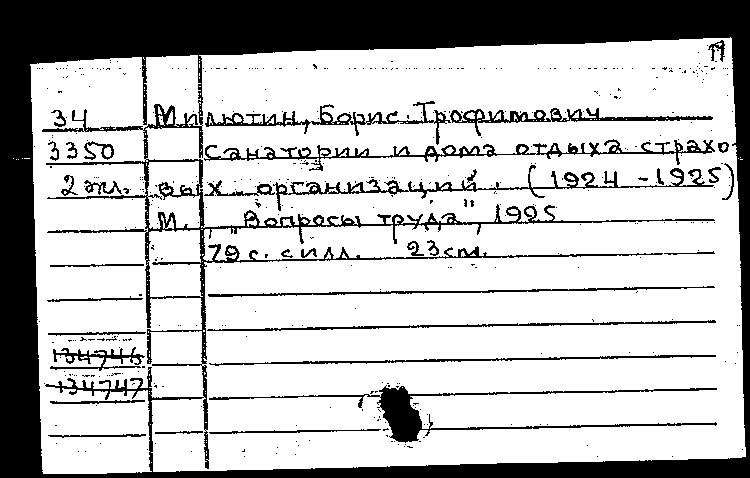 34 Милютин, Борис Трофимович
3350 Санатории и дома отдыха страхо-
2 экз. вых организаций. (1924 - 1925)
М., "Вопросы труда", 1925
79 с. с илл. 23 см.
134746
134747